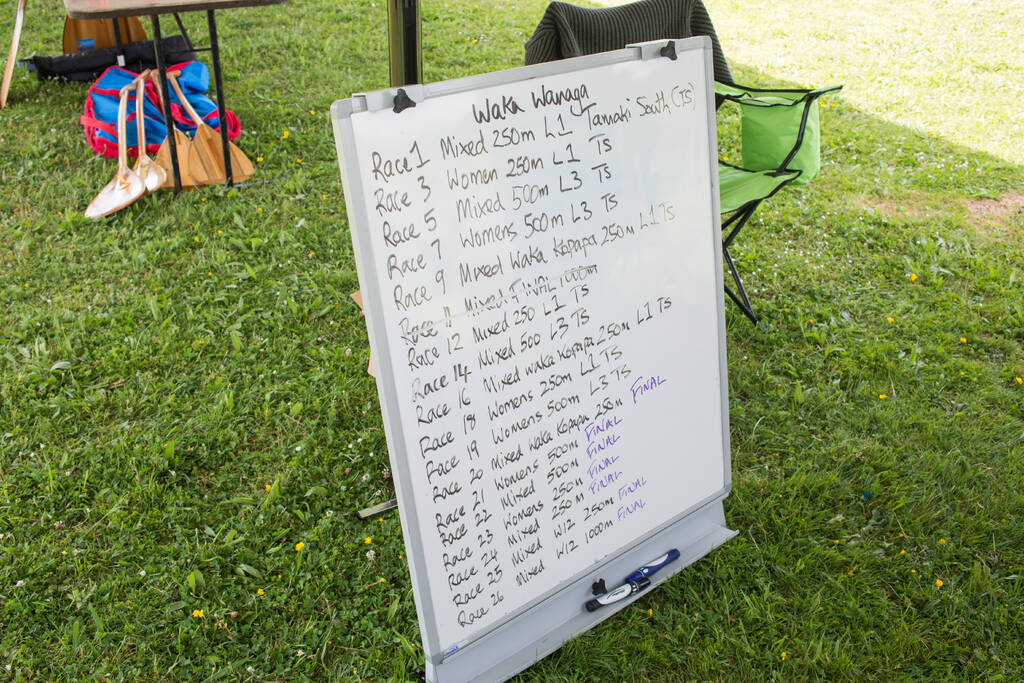 Waka Wanaga
Race 1 Mixed 250m L1 Tamaki South (TS)
Race 3 Women 250m L1 TS
Race 5 Mixed 500m L3 TS
Race 7 Womens 500m L3 TS
Race 9 Mixed Waka Kopapa 250m L1 TS
Race 11 Mixed FINAL 1000m
Race 12 Mixed 250 L1 TS
Race 14 Mixed 500 L3 TS
Race 16 Mixed Waka Kopapa 250m L1 TS
Race 18 Womens 250m L1 TS
Race 19 Womens 500m L3 TS
Race 20 Mixed Waka Kopapa 250m FINAL
Race 21 Womens 500m FINAL
Race 22 Mixed 500m FINAL
Race 23 Womens 250m FINAL
Race 24 Mixed 250m FINAL
Race 25 Mixed W12 250m FINAL
Race 26 Mixed W12 1000m FINAL